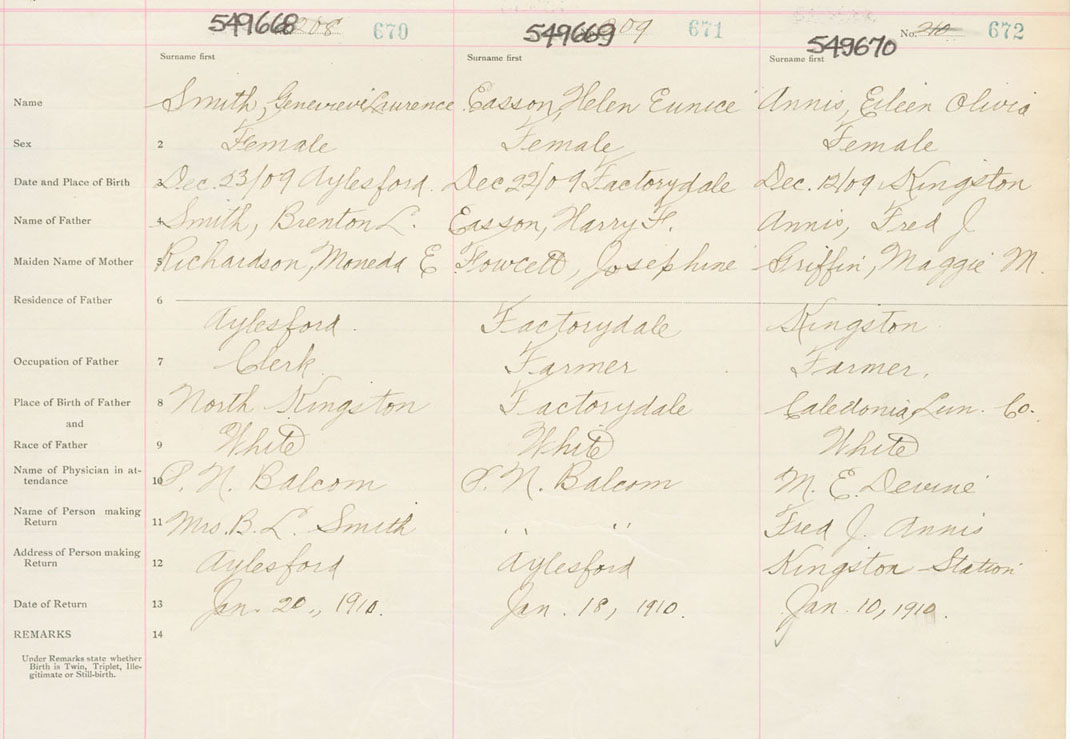 549668 208 670 549669 209 671 549670 No. 210 672
Surname first Surname first Surname first
Name Smith, Genevieve Laurence Easson, Helen Eunice Annis, Eileen Olivia
Sex 2 Female Female Female
Date and Place of Birth 3 Dec. 23/09 Aylesford. Dec 22/09 Factorydale Dec. 12/09 Kingston
Name of Father 4 Smith, Brenton L. Easson, Harry F. Annis, Fred J
Maiden Name of Mother 5 Richardson, Moneda E Fowcett, Josephine Griffin, Maggie M.
Residence of Father 6
Aylesford. Factorydale Kingston
Occupation of Father 7 Clerk Farmer Farmer.
Place of Birth of Father 8 North Kingston Factorydale Caledonia, Lun. Co.
and
Race of Father 9 White White White
Name of Physician in at-
tendance 10 P. N. Balcom P. N. Balcom M. E. Devine
Name of Person making
Return 11 Mrs. B. L. Smith " " Fred J. Annis
Address of Person making
Return 12 Aylesford Aylesford Kingston Station
Date of Return 13 Jan. 20., 1910. Jan. 18, 1910. Jan. 10, 1910.
REMARKS 14
Under Remarks state whether
Birth is Twin, Triplet, Ille-
gitimate or Still-birth.